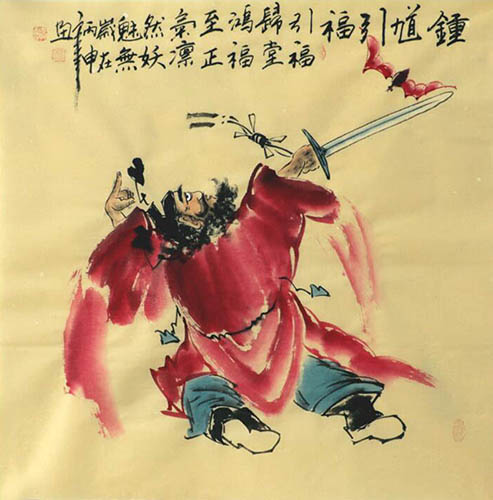 鍾馗引福
引福
歸堂
鴻福
至正
氣凜
然妖
魅無
歲在
丙申